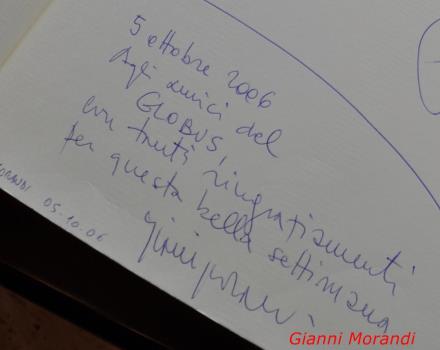 5 ottobre 2006
Agli amici del
GLOBUS,
con tanti ringraziamenti
per questa bella settimana
Gianni Morandi
MORANDI 05.10.06
Gianni Morandi